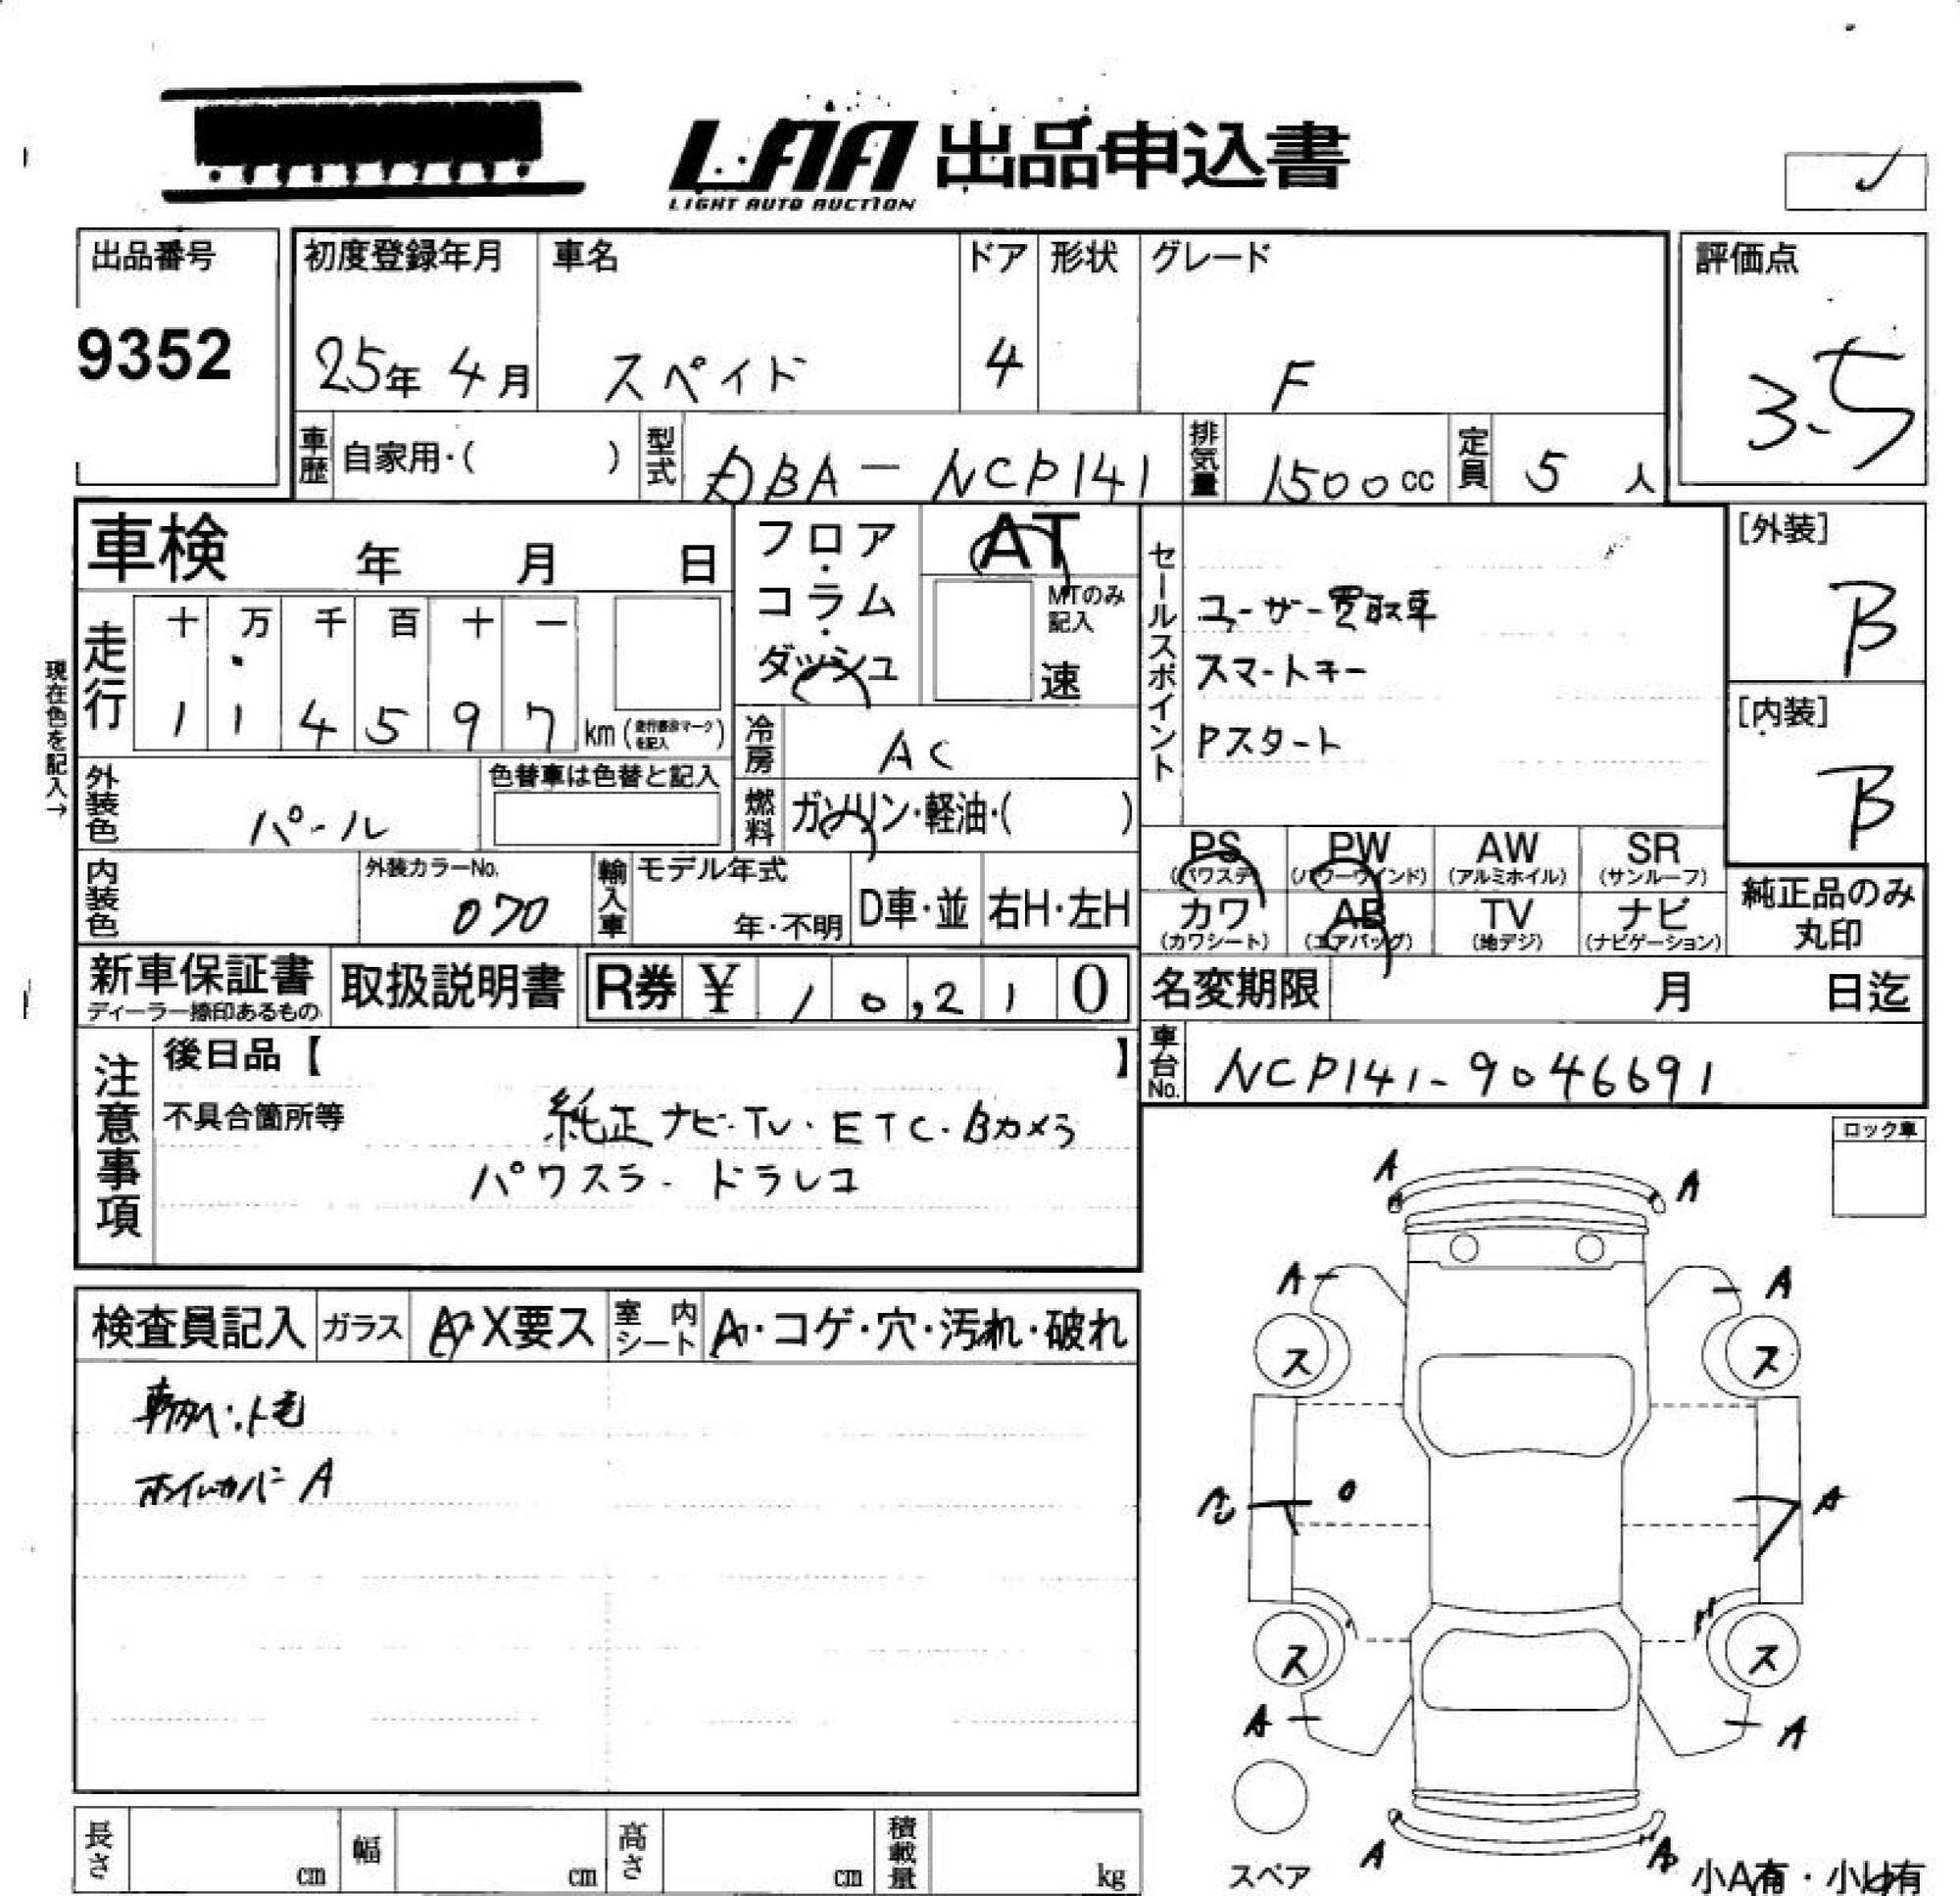 LAA 出品申込書
LIGHT AUTO AUCTION
出品番号
9352
初度登録年月
25年 4月
車名
スペイド
ドア
4
形状
グレード
F
評価点
3.5
車歴 自家用・( )
型式 DBA-NCP141
排気量 1500cc
定員 5人
車検 年 月 日
フロア・コラム・ダッシュ
AT
MTのみ記入
速
セールスポイント
ユーザー買取車
スマートキー
Pスタート
[外装]
B
[内装]
B
現在色を記入→
走行
十 万 千 百 十 一
1 1 4 5 9 7 km (走行要示マークを記入)
冷房 AC
外装色 パール
色替車は色替と記入
燃料 ガソリン・軽油・( )
PS (パワステ)
PW (パワーウインド)
AW (アルミホイル)
SR (サンルーフ)
カワ (カワシート)
AB (エアバッグ)
TV (地デジ)
ナビ (ナビゲーション)
純正品のみ丸印
内装色
外装カラーNo.
070
輸入車
モデル年式
年・不明
D車・並
右H・左H
新車保証書
ディーラー捺印あるもの
取扱説明書
R券 ¥ 10,210
名変期限 月 日迄
車台No. NCP141-9046691
注意事項
後日品【 】
不具合箇所等
純正ナビ・TV・ETC・Bカメラ
パワスラ・ドラレコ
ロック車
検査員記入
ガラス A・X要ス
室内シート A・コゲ・穴・汚れ・破れ
ホイルカバー A
A A
A A
ス ス
A
ス ス
A A
A A
スペア
小A有・小U有
長さ cm
幅 cm
高さ cm
積載量 kg